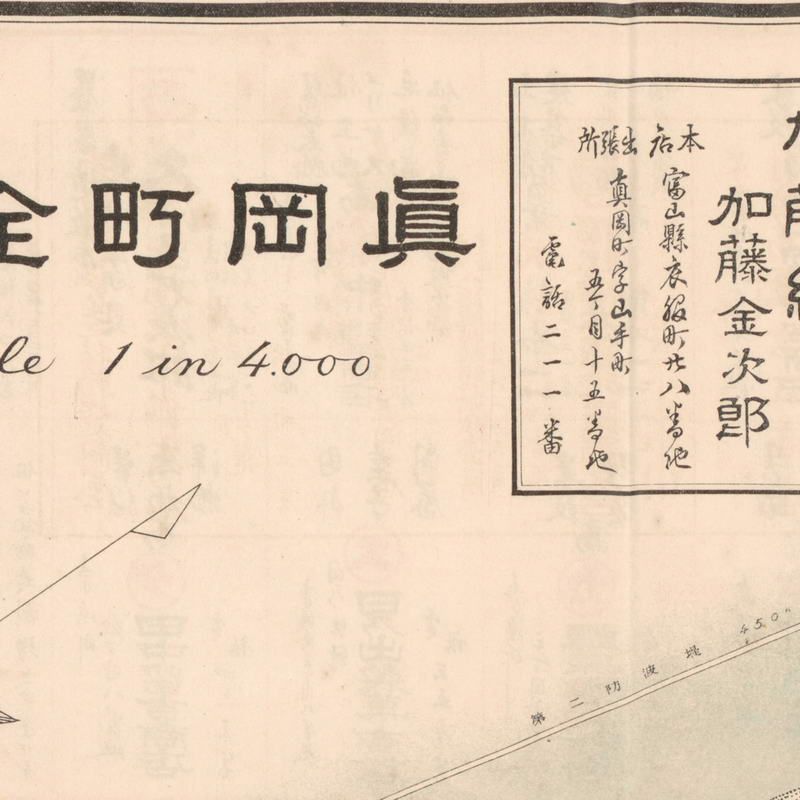 眞岡町全
1 in 4.000
加藤金次郎
本店
富山縣衣服町廿八番地
出張所
真岡町字山手町
五丁目十五番地
電話二一一番
第二防波堤 450